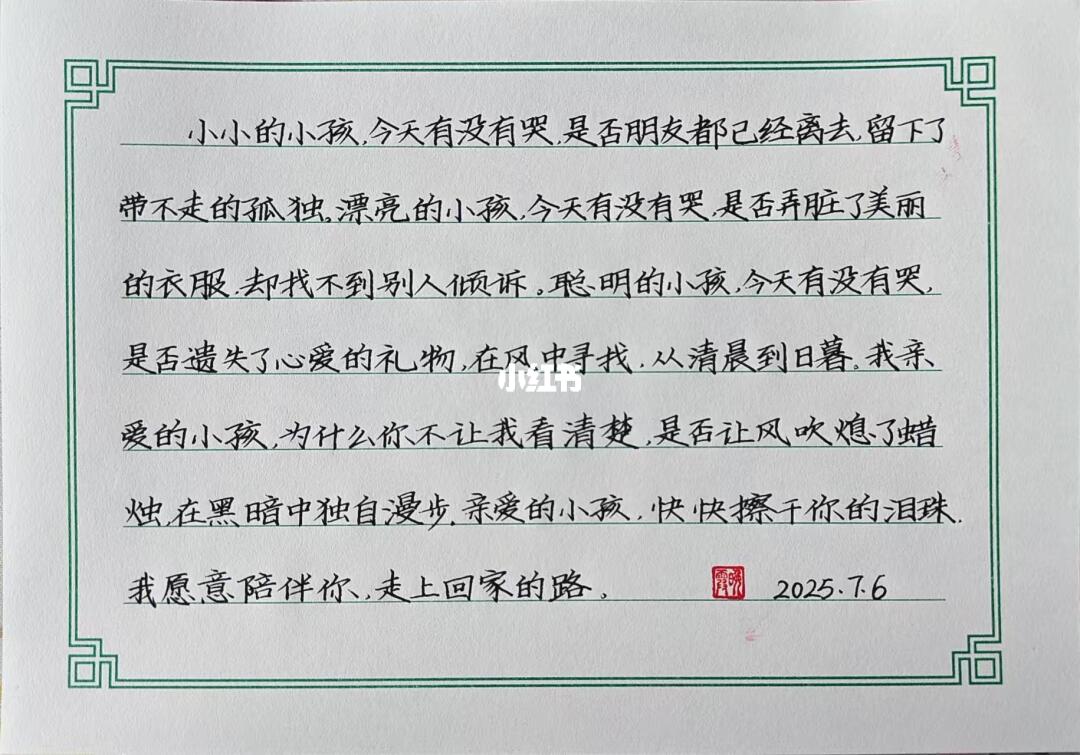 小小的小孩,今天有没有哭,是否朋友都已经离去,留下了
带不走的孤独。漂亮的小孩,今天有没有哭,是否弄脏了美丽
的衣服,却找不到别人倾诉。聪明的小孩,今天有没有哭,
是否遗失了心爱的礼物,在风中寻找,从清晨到日暮。我亲
小红书
爱的小孩,为什么你不让我看清楚,是否让风吹熄了蜡
烛,在黑暗中独自漫步,亲爱的小孩,快快擦干你的泪珠,
我愿意陪伴你,走上回家的路。 2025.7.6